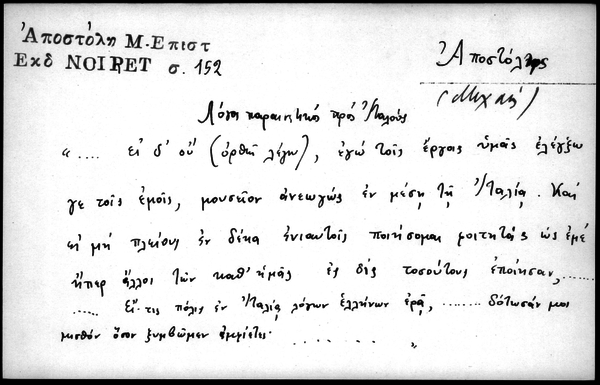 Ἀποστόλη Μ. Επιστ
Εκδ NOIRET σ. 152
Ἀποστόλης
(Μιχαήλ)
Λόγος παραινητικός πρός Ἰταλούς
«.... εἰ δ' οὔ (ὀρθῶς λέγω), ἐγώ τοῖς ἔργοις ὑμᾶς ἐλέγξω
γε τοῖς ἐμοῖς, μουσεῖον ἀνεωγώς ἐν μέσῃ τῇ Ἰταλίᾳ. Καί
εἰ μή πλείους ἐν δέκα ἐνιαυτοῖς ποιήσομαι φοιτητάς ὡς ἐμέ
ἤπερ ἄλλοι τῶν καθ' ἡμᾶς ἐς δίς τοσούτους ἐποίησαν, ......
..... Εἴ τις πόλις ἐν Ἰταλίᾳ λόγων ἑλλήνων ἐρᾷ, ...... δότωσάν μοι
μισθόν ὅσον ξυμβῶμεν ......»